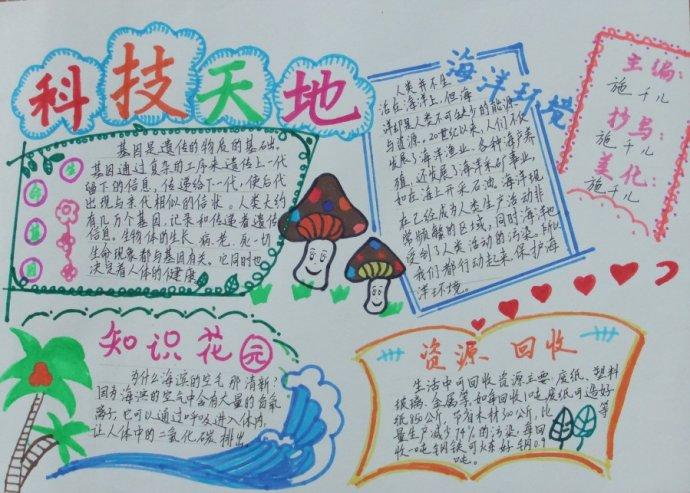 科技天地
生命基因
基因是遗传的物质的基础。
基因通过复杂的工序来遗传上一代
留下的信息，传递给下一代，使后代
出现与亲代相似的信状。人类大约
有几万个基因，记录和传递者遗传
信息。生物体的生长、病、老、死、一切
生命现象都与基因有关。它同时也
决定者人体的健康
海洋环境
人类并不生
活在海洋上，但海
洋却是人类不可缺少的能源
与资源。20世纪以来，人们不仅
发展了海洋渔业、各种海产养
殖，还发展了海洋采矿事业，
和在海上开采石油。海洋现
在已经成为人类生产活动非
常频繁的区域，同时海洋也
受到了人类活动的污染。所以
我们都行动起来，保护海
洋环境。
主编：
施千儿
抄写：
施千儿
美化：
施千儿
知识花园
为什么海滨的空气那清新？
因为海滨的空气中会有大量的负氧
离子，它可以通过呼吸进入体内，
让人体中的二氧化碳排出。
资源 回收
生活中可回收资源主要：废纸、塑料
玻璃、金属等，如每回收1吨废纸可造好
纸850公斤，节省木材300公斤，比等
量生产减少74%的污染，每回
收一吨钢铁可火东好钢0.9
吨。